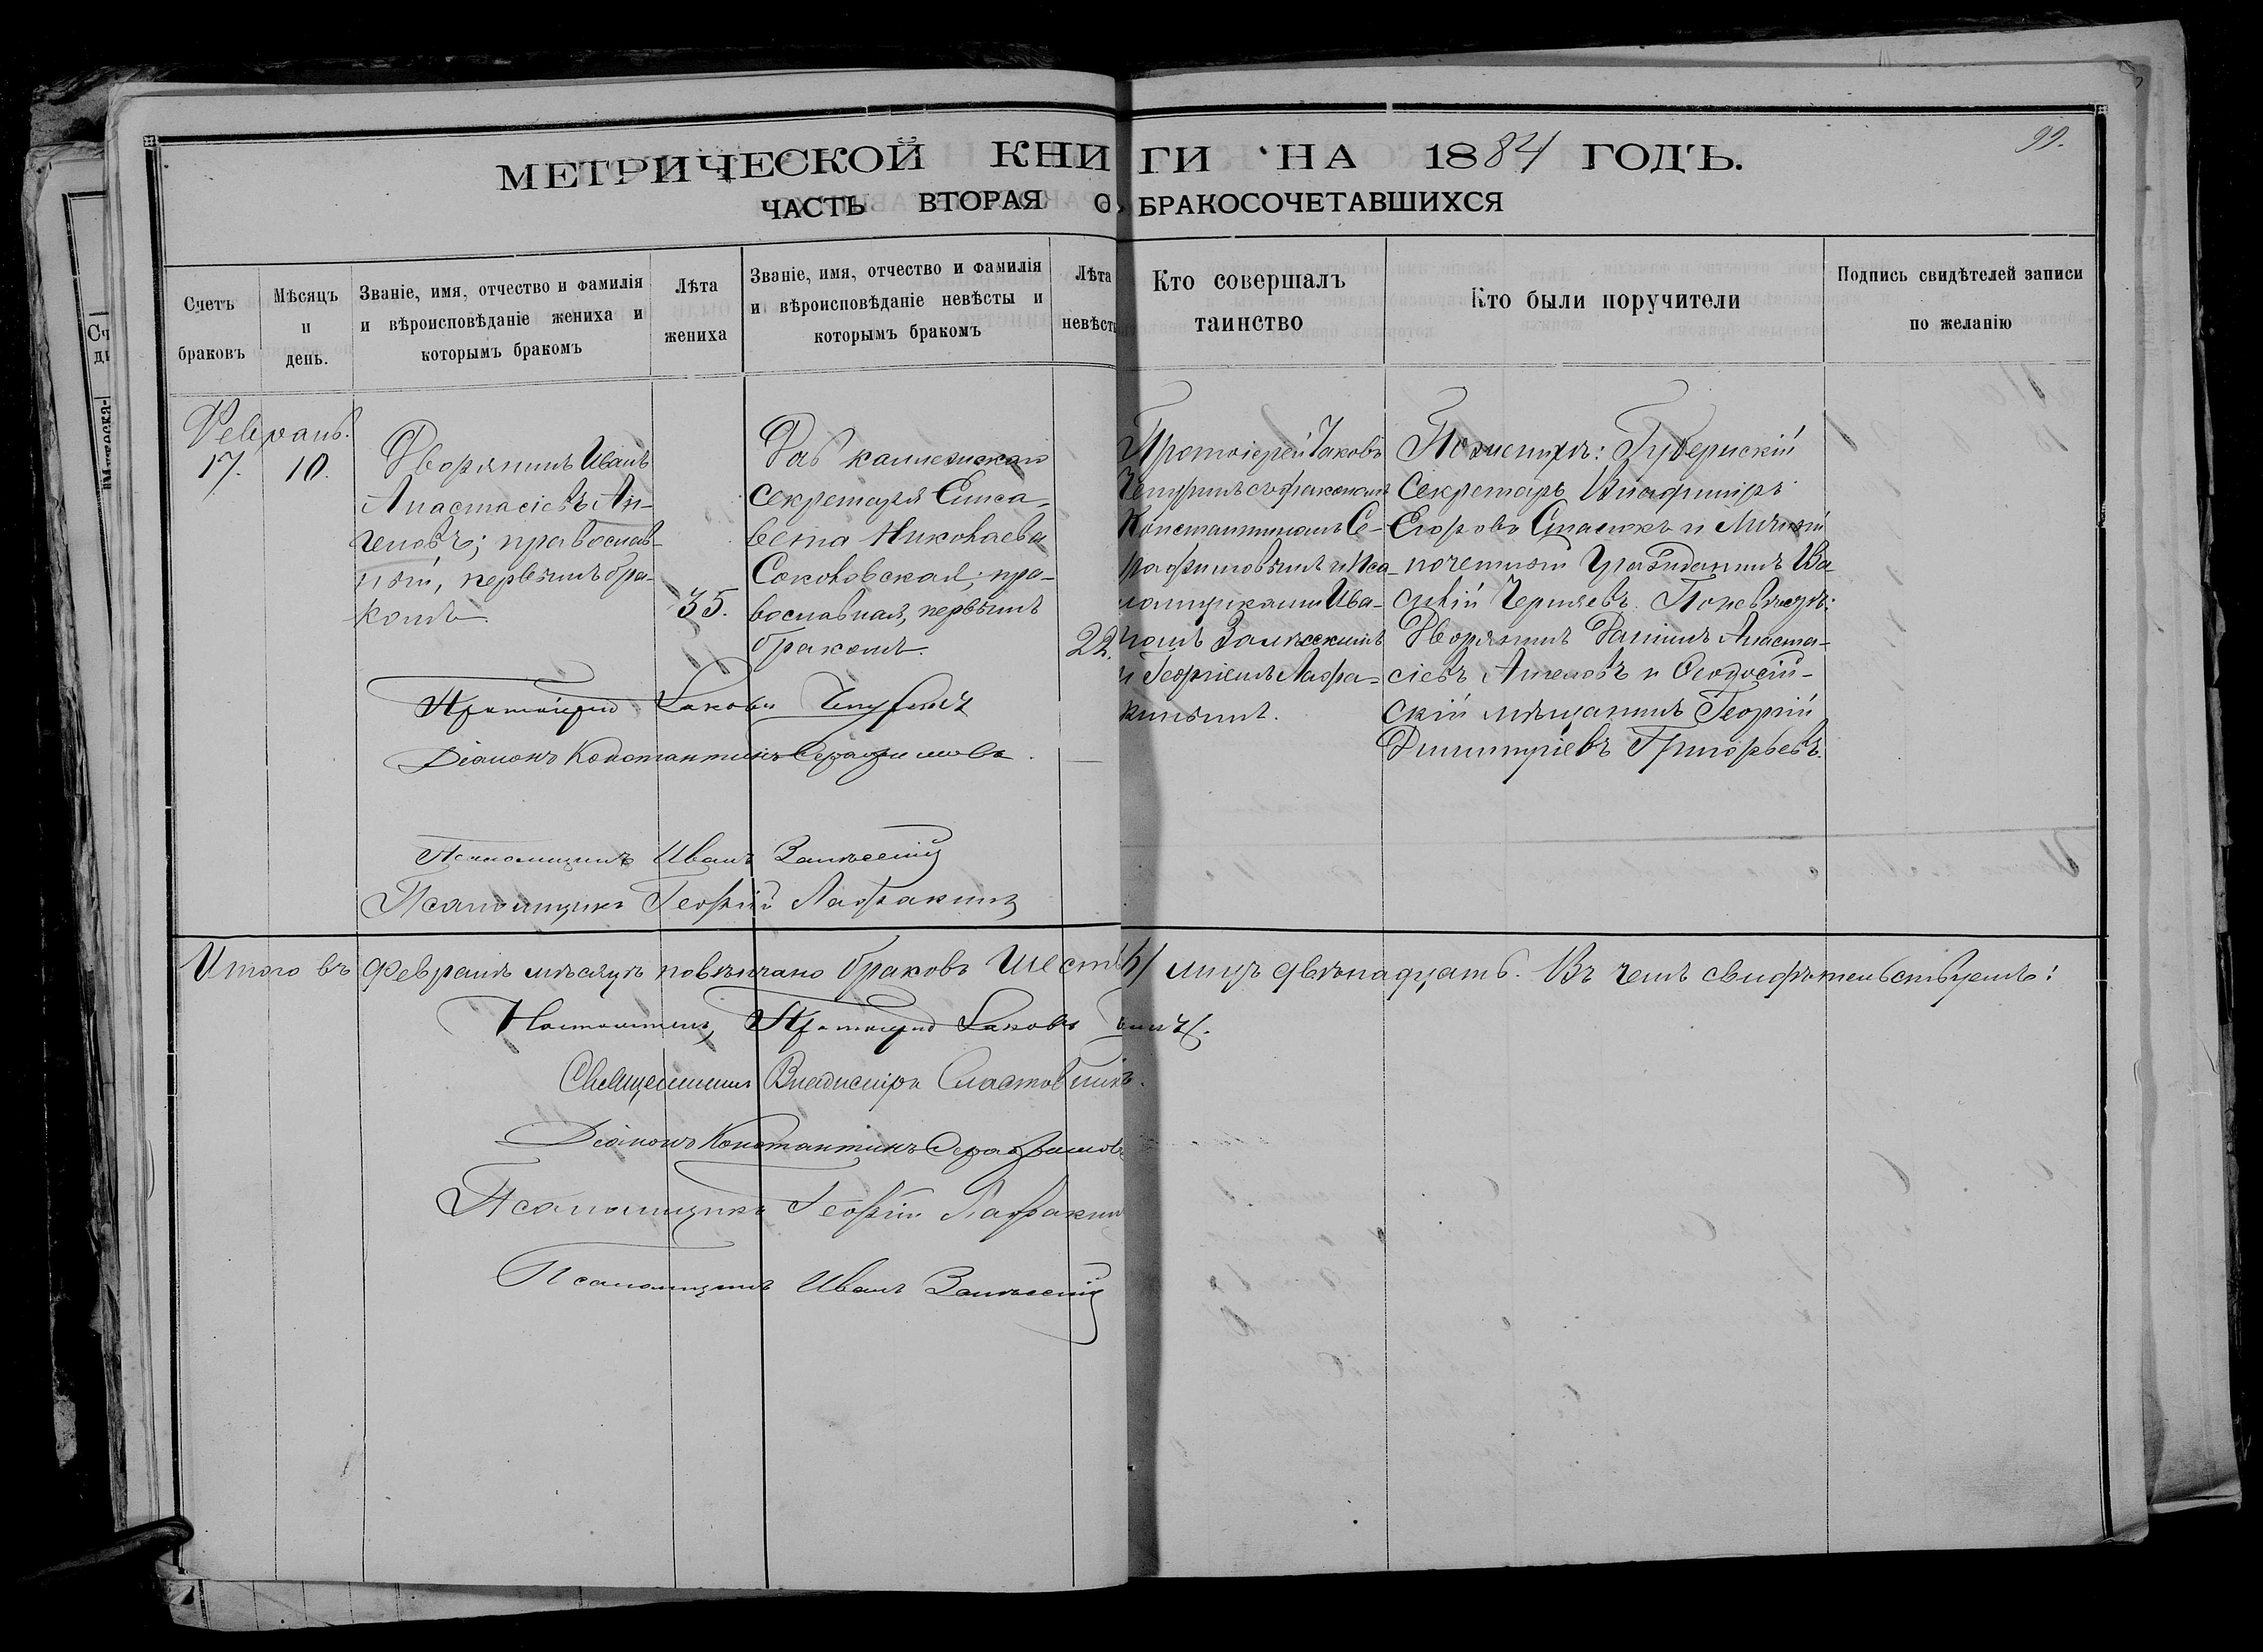 99.
МЕТРИЧЕСКОЙ КНИГИ НА 1884 ГОДЪ.
ЧАСТЬ ВТОРАЯ О БРАКОСОЧЕТАВШИХСЯ
Счетъ
браковъ
Мѣсяцъ
и
день.
Званіе, имя, отчество и фамилія
и вѣроисповѣданіе жениха и
которымъ бракомъ
Лѣта
жениха
Званіе, имя, отчество и фамилія
и вѣроисповѣданіе невѣсты и
которымъ бракомъ
Лѣта
невѣсты
Кто совершалъ
таинство
Кто были поручители
Подпись свидѣтелей записи
по желанію
Февраль.
17.
10.
Дворянинъ Иванъ
Анастасіевъ Ан-
геловъ; православ-
ный, первымъ бра-
комъ
35.
секретаря Елиса-
вета Николаева
Соколовская; пра-
вославная, первымъ
бракомъ.
22.
Протоіерей Іаковъ
Константиномъ Се-
рафимовымъ и пса-
ломщиками Ива-
номъ Залѣсскимъ
и Георгіемъ Лафа-
кинымъ.
По женихѣ: Губернскій
Секретарь Владиміръ
Егоровъ и Личный
почетный Гражданинъ Ва-
силій Черняевъ. По невѣстѣ:
Дворянинъ Даніилъ Анаста-
сіевъ Ангеловъ и Ѳеодосій-
скій мѣщанинъ Георгій
Димитріевъ Григорьевъ.
Протоіерей Іаковъ
Діаконъ Константинъ Серафимовъ.
Псаломщикъ Иванъ Залѣсскій
Псаломщикъ Георгій Лафакинъ
Итого въ Февралѣ мѣсяцѣ повѣнчано браковъ шесть 6/ лицъ двѣнадцать. Въ чемъ свидѣтельствуемъ:
Настоятель, Протоіерей Іаковъ
Священникъ Владиміръ
Діаконъ Константинъ Серафимовъ
Псаломщикъ Георгій Лафакин
Псаломщикъ Иванъ Залѣсскій